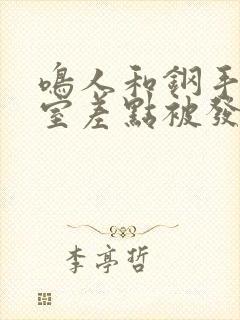 鳴人和鋼手
室差點被發
李亭哲